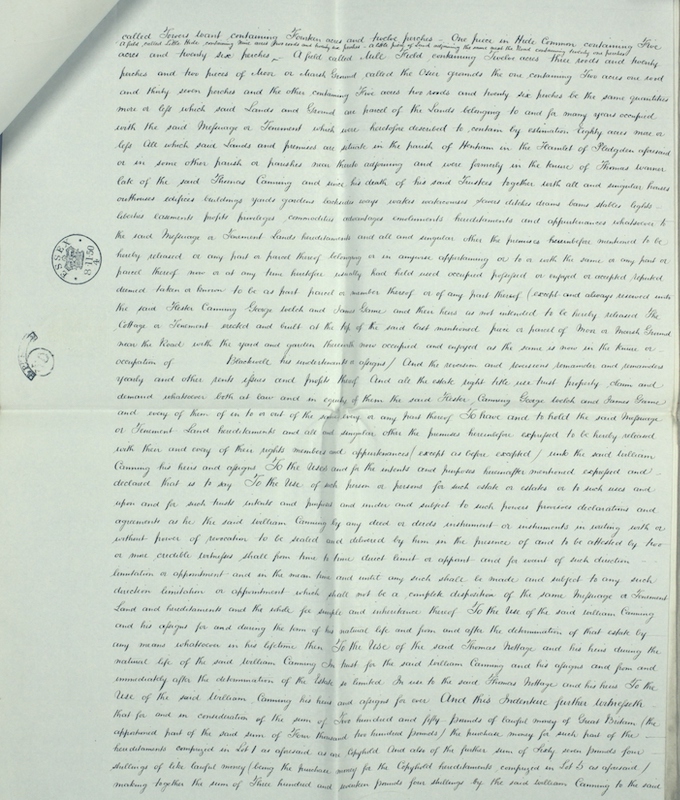 called Tovers want containing Fourteen acres and twelve perches – One piece in Hide Common containing Five
A field called Little Hide containing nine acres two roods and twenty six perches – a little piece of Land adjoining the same next the Road containing twenty one perches
acres and twenty six perches – A field called Mill Field containing Twelve acres three roods and twenty
perches and two pieces of Moor or Marsh Ground called the Osier grounds the one containing Two acres one rood
and thirty seven perches and the other containing Five acres two roods and twenty six perches be the same quantities
more or less which said Lands and Ground are parcel of the Lands belonging to and for many years occupied
with the said Messuage or Tenement which were heretofore described to contain by estimation Eighty acres more or
less All which said Lands and premises are situate in the parish of Henham in the Hamlet of Pledgdon aforesaid
or in some other parish or parishes near thereto adjoining and were formerly in the tenure of Thomas Warner
late of the said Thomas Canning and since his death of his said Trustees together with all and singular houses
outhouses edifices buildings yards gardens backsides ways waters watercourses sewers ditches drains barns stables lights
liberties easements profits privileges commodities advantages emoluments hereditaments and appurtenances whatsoever to
the said Messuage or Tenement Lands hereditaments and all and singular other the premises hereinbefore mentioned to be
hereby released or any part or parcel thereof belonging or in anywise appertaining or to or with the same or any part or
parcel thereof now or at any time heretofore usually had held used occupied possessed or enjoyed or accepted reputed
deemed taken or known to be as part parcel or member thereof or of any part thereof (except and always reserved unto
the said Hester Canning George Welch and James Grane and their heirs as not intended to be hereby released The
Cottage or Tenement erected and built at the top of the said last mentioned piece or parcel of Moor or Marsh Ground
near the Road with the yard and garden therewith now occupied and enjoyed as the same is now in the tenure or
occupation of Blackwell his undertenants or assigns) And the reversion and reversions remainder and remainders
yearly and other rents issues and profits thereof And all the estate right title use trust property claim and
demand whatsoever both at law and in equity of them the said Hester Canning George Welch and James Grane
and every of them of in to or out of the same every or any part thereof To have and to hold the said Messuage
or Tenement Land hereditaments and all and singular other the premises hereinbefore expressed to be hereby released
with their and every of their rights members and appurtenances (except as before excepted) unto the said William
Canning his heirs and assigns To the Uses and for the intents and purposes hereinafter mentioned expressed and
declared that is to say To the Use of such person or persons for such estate or estates or to such uses and
upon and for such trusts intents and purposes and under and subject to such powers provisoes declarations and
agreements as he the said William Canning by any deed or deeds instrument or instruments in writing with or
without power of revocation to be sealed and delivered by him in the presence of and to be attested by two
or more credible witnesses shall from time to time direct limit or appoint and for want of such direction
limitation or appointment and in the mean time and until any such shall be made and subject to any such
direction limitation or appointment which shall not be a complete disposition of the same Messuage or Tenement
Land and hereditaments and the whole fee simple and inheritance thereof To the Use of the said William Canning
and his assigns for and during the term of his natural life and from and after the determination of that estate by
any means whatsoever in his lifetime then To the Use of the said Thomas Nottage and his heirs during the
natural life of the said William Canning In trust for the said William Canning and his assigns and from and
immediately after the determination of the Estate so limited In use to the said Thomas Nottage and his heirs To the
Use of the said William Canning his heirs and assigns for ever And this Indenture further witnesseth
that for and in consideration of the sum of Two hundred and fifty pounds of lawful money of Great Britain (the
apportioned part of the said sum of Four thousand two hundred pounds) the purchase money for such part of the
hereditaments comprized in Lot 1 as aforesaid as are Copyhold And also of the further sum of Sixty seven pounds four
shillings of like lawful money (being the purchase money for the Copyhold hereditaments comprized in Lot 2 as aforesaid)
making together the sum of Three hundred and seventeen pounds four shillings by the said William Canning to the said
ESSEX
11 50